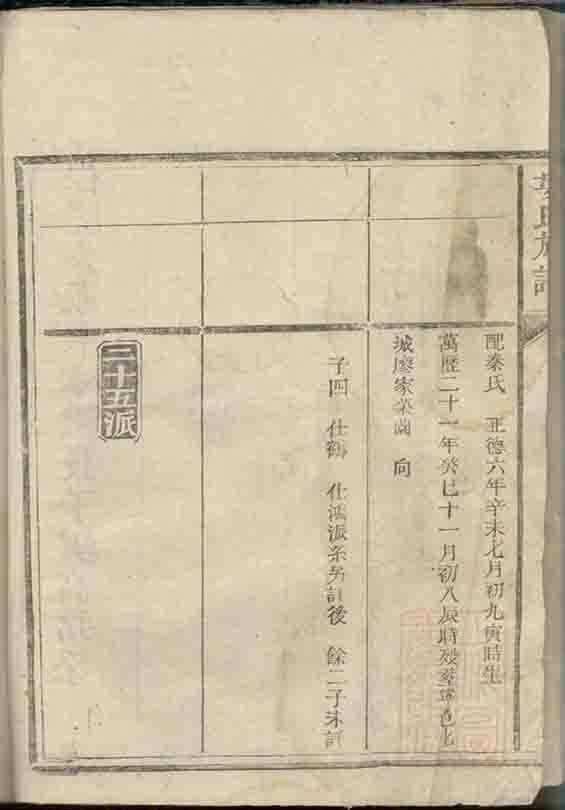 氏族譜
配秦氏 正德六年辛未七月初九寅時生
萬歷二十一年癸巳十一月初八辰時殁塟
城廖家菜園 向
子四 仕鶴 仕鴻派系另訂後 餘二子未訂
二十五派